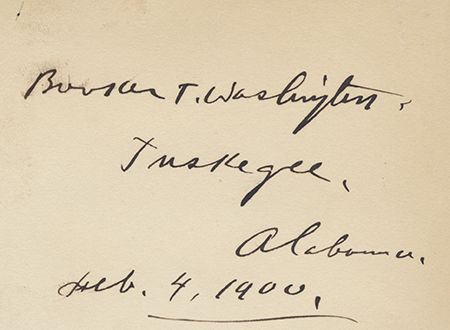 Booker T. Washington.
Tuskegee,
Alabama.
Feb. 4, 1900.